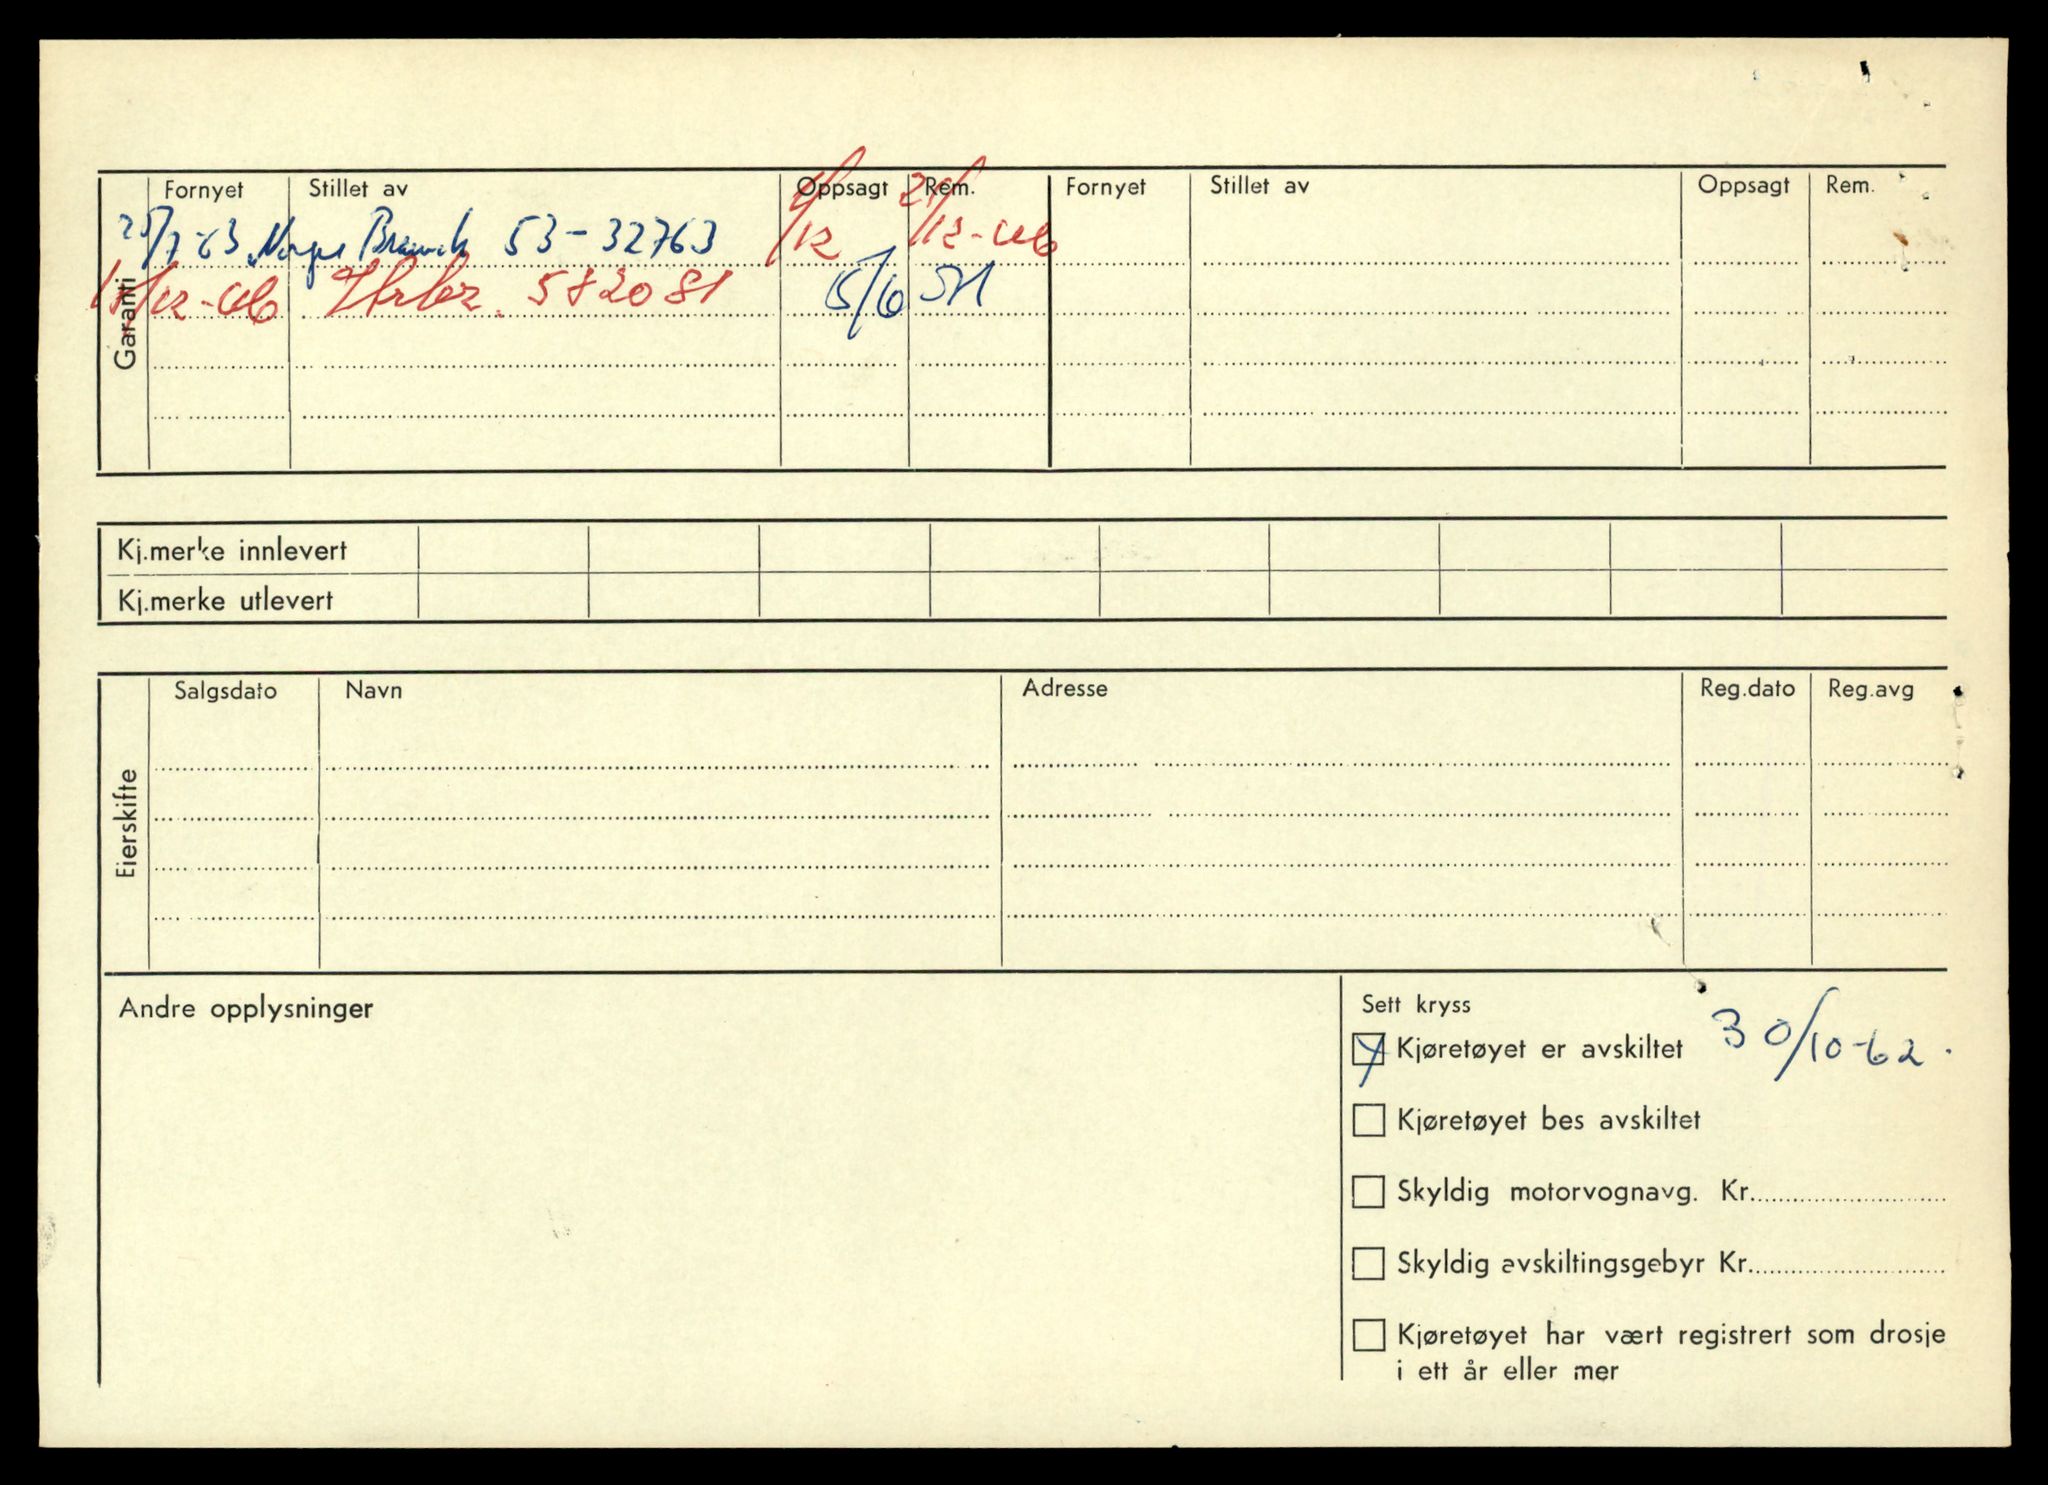 Garanti
Fornyet Stillet av Oppsagt Rem. Fornyet Stillet av Oppsagt Rem.
25/7-63 Norges Brannk 53-32763 /12 /12-66
/12-66 582081 5/6
Kj.merke innlevert
Kj.merke utlevert
Eierskifte
Salgsdato Navn Adresse Reg.dato Reg.avg
Andre opplysninger
Sett kryss
Kjøretøyet er avskiltet 30/10-62.
Kjøretøyet bes avskiltet
Skyldig motorvognavg. Kr.
Skyldig avskiltingsgebyr Kr.
Kjøretøyet har vært registrert som drosje
i ett år eller mer